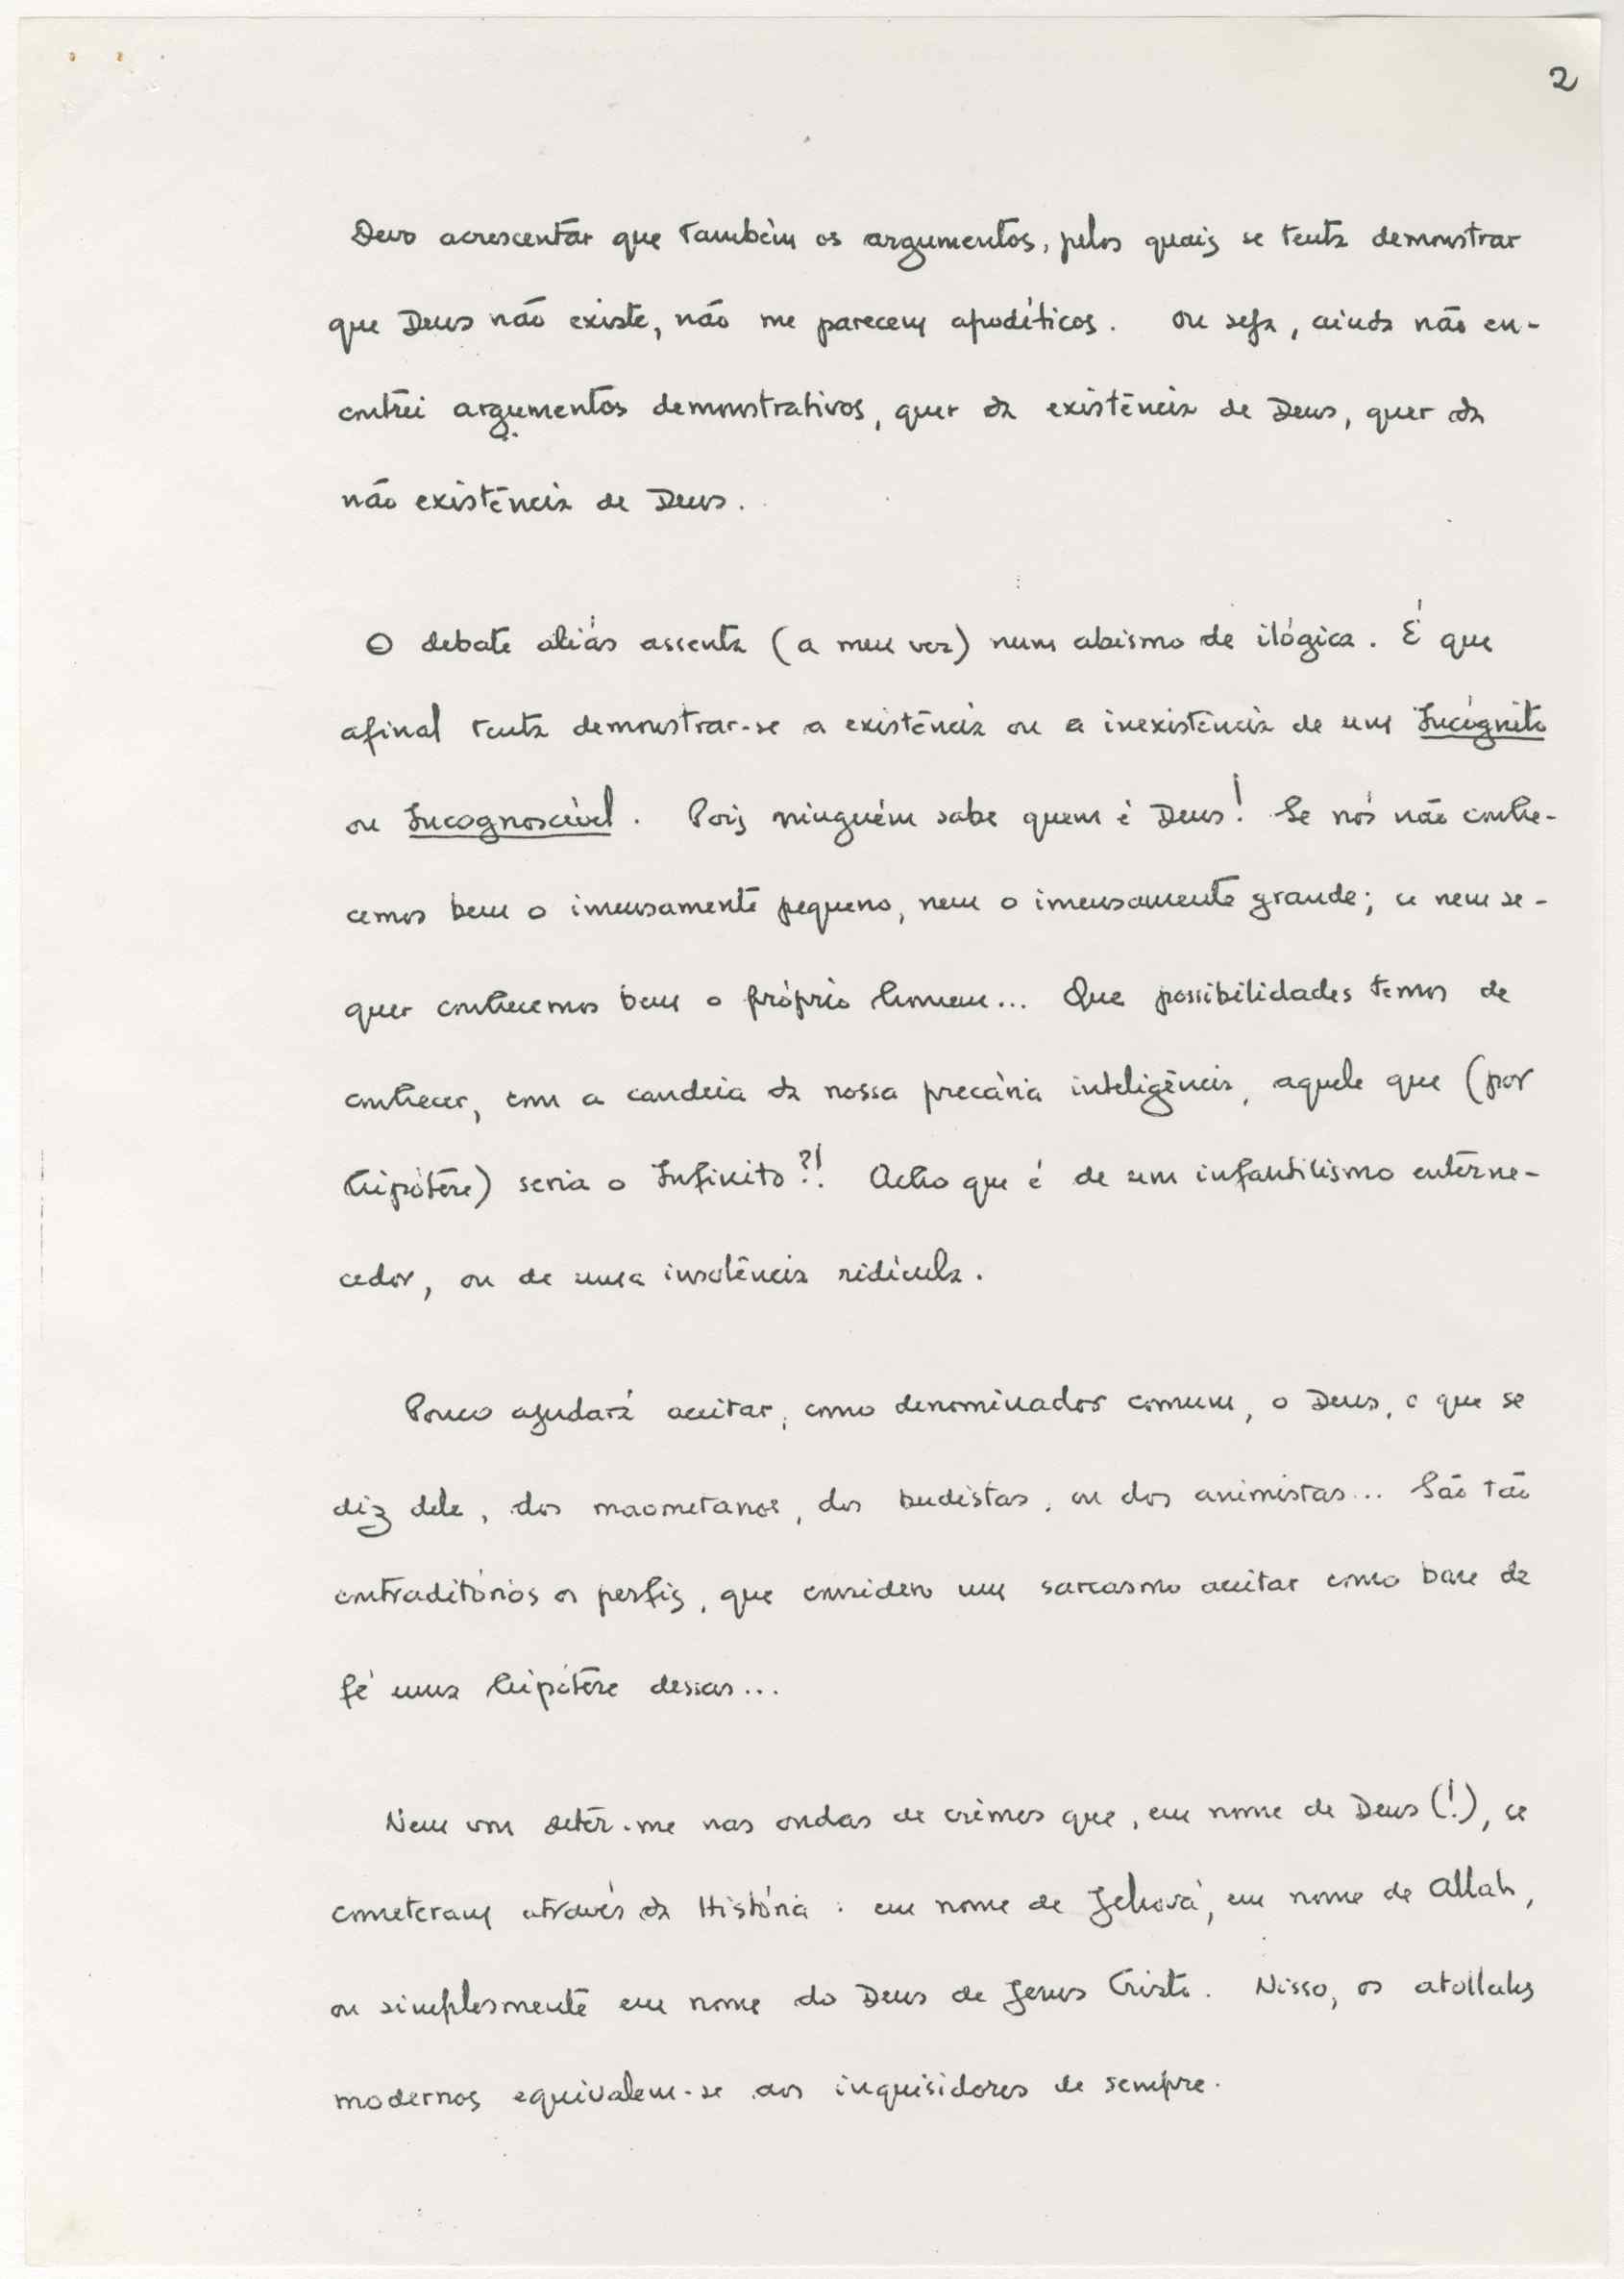 2
Devo acrescentar que também os argumentos, pelos quais se tenta demonstrar
que Deus não existe, não me parecem apodíticos. Ou seja, ainda não en-
contrei argumentos demonstrativos, quer da existência de Deus, quer da
não existência de Deus.
O debate aliás assenta (a meu ver) num abismo de ilógica. É que
afinal tenta demonstrar-se a existência ou a inexistência de um Incógnito
ou Incognoscível. Pois ninguém sabe quem é Deus! Se nós não conhe-
cemos bem o imensamente pequeno, nem o imensamente grande; se nem se-
quer conhecemos bem o próprio homem... Que possibilidades temos de
conhecer, com a candeia da nossa precária inteligência, aquele que (por
hipótese) seria o Infinito?! Acho que é de um infantilismo enterne-
cedor, ou de uma insolência ridícula.
Pouco ajudará aceitar, como denominador comum, o Deus, o que se
diz dele, dos maometanos, dos budistas, ou dos animistas... São tão
contraditórios os perfis, que considero um sarcasmo aceitar como base da
fé uma hipótese dessas...
Nem vou deter-me nas ondas de crimes que, em nome de Deus (!), se
cometeram através da História: em nome de Jehová, em nome de Allah,
ou simplesmente em nome do Deus de Jesus Cristo. Nisso, os atollahs
modernos equivalem-se aos inquisidores de sempre.